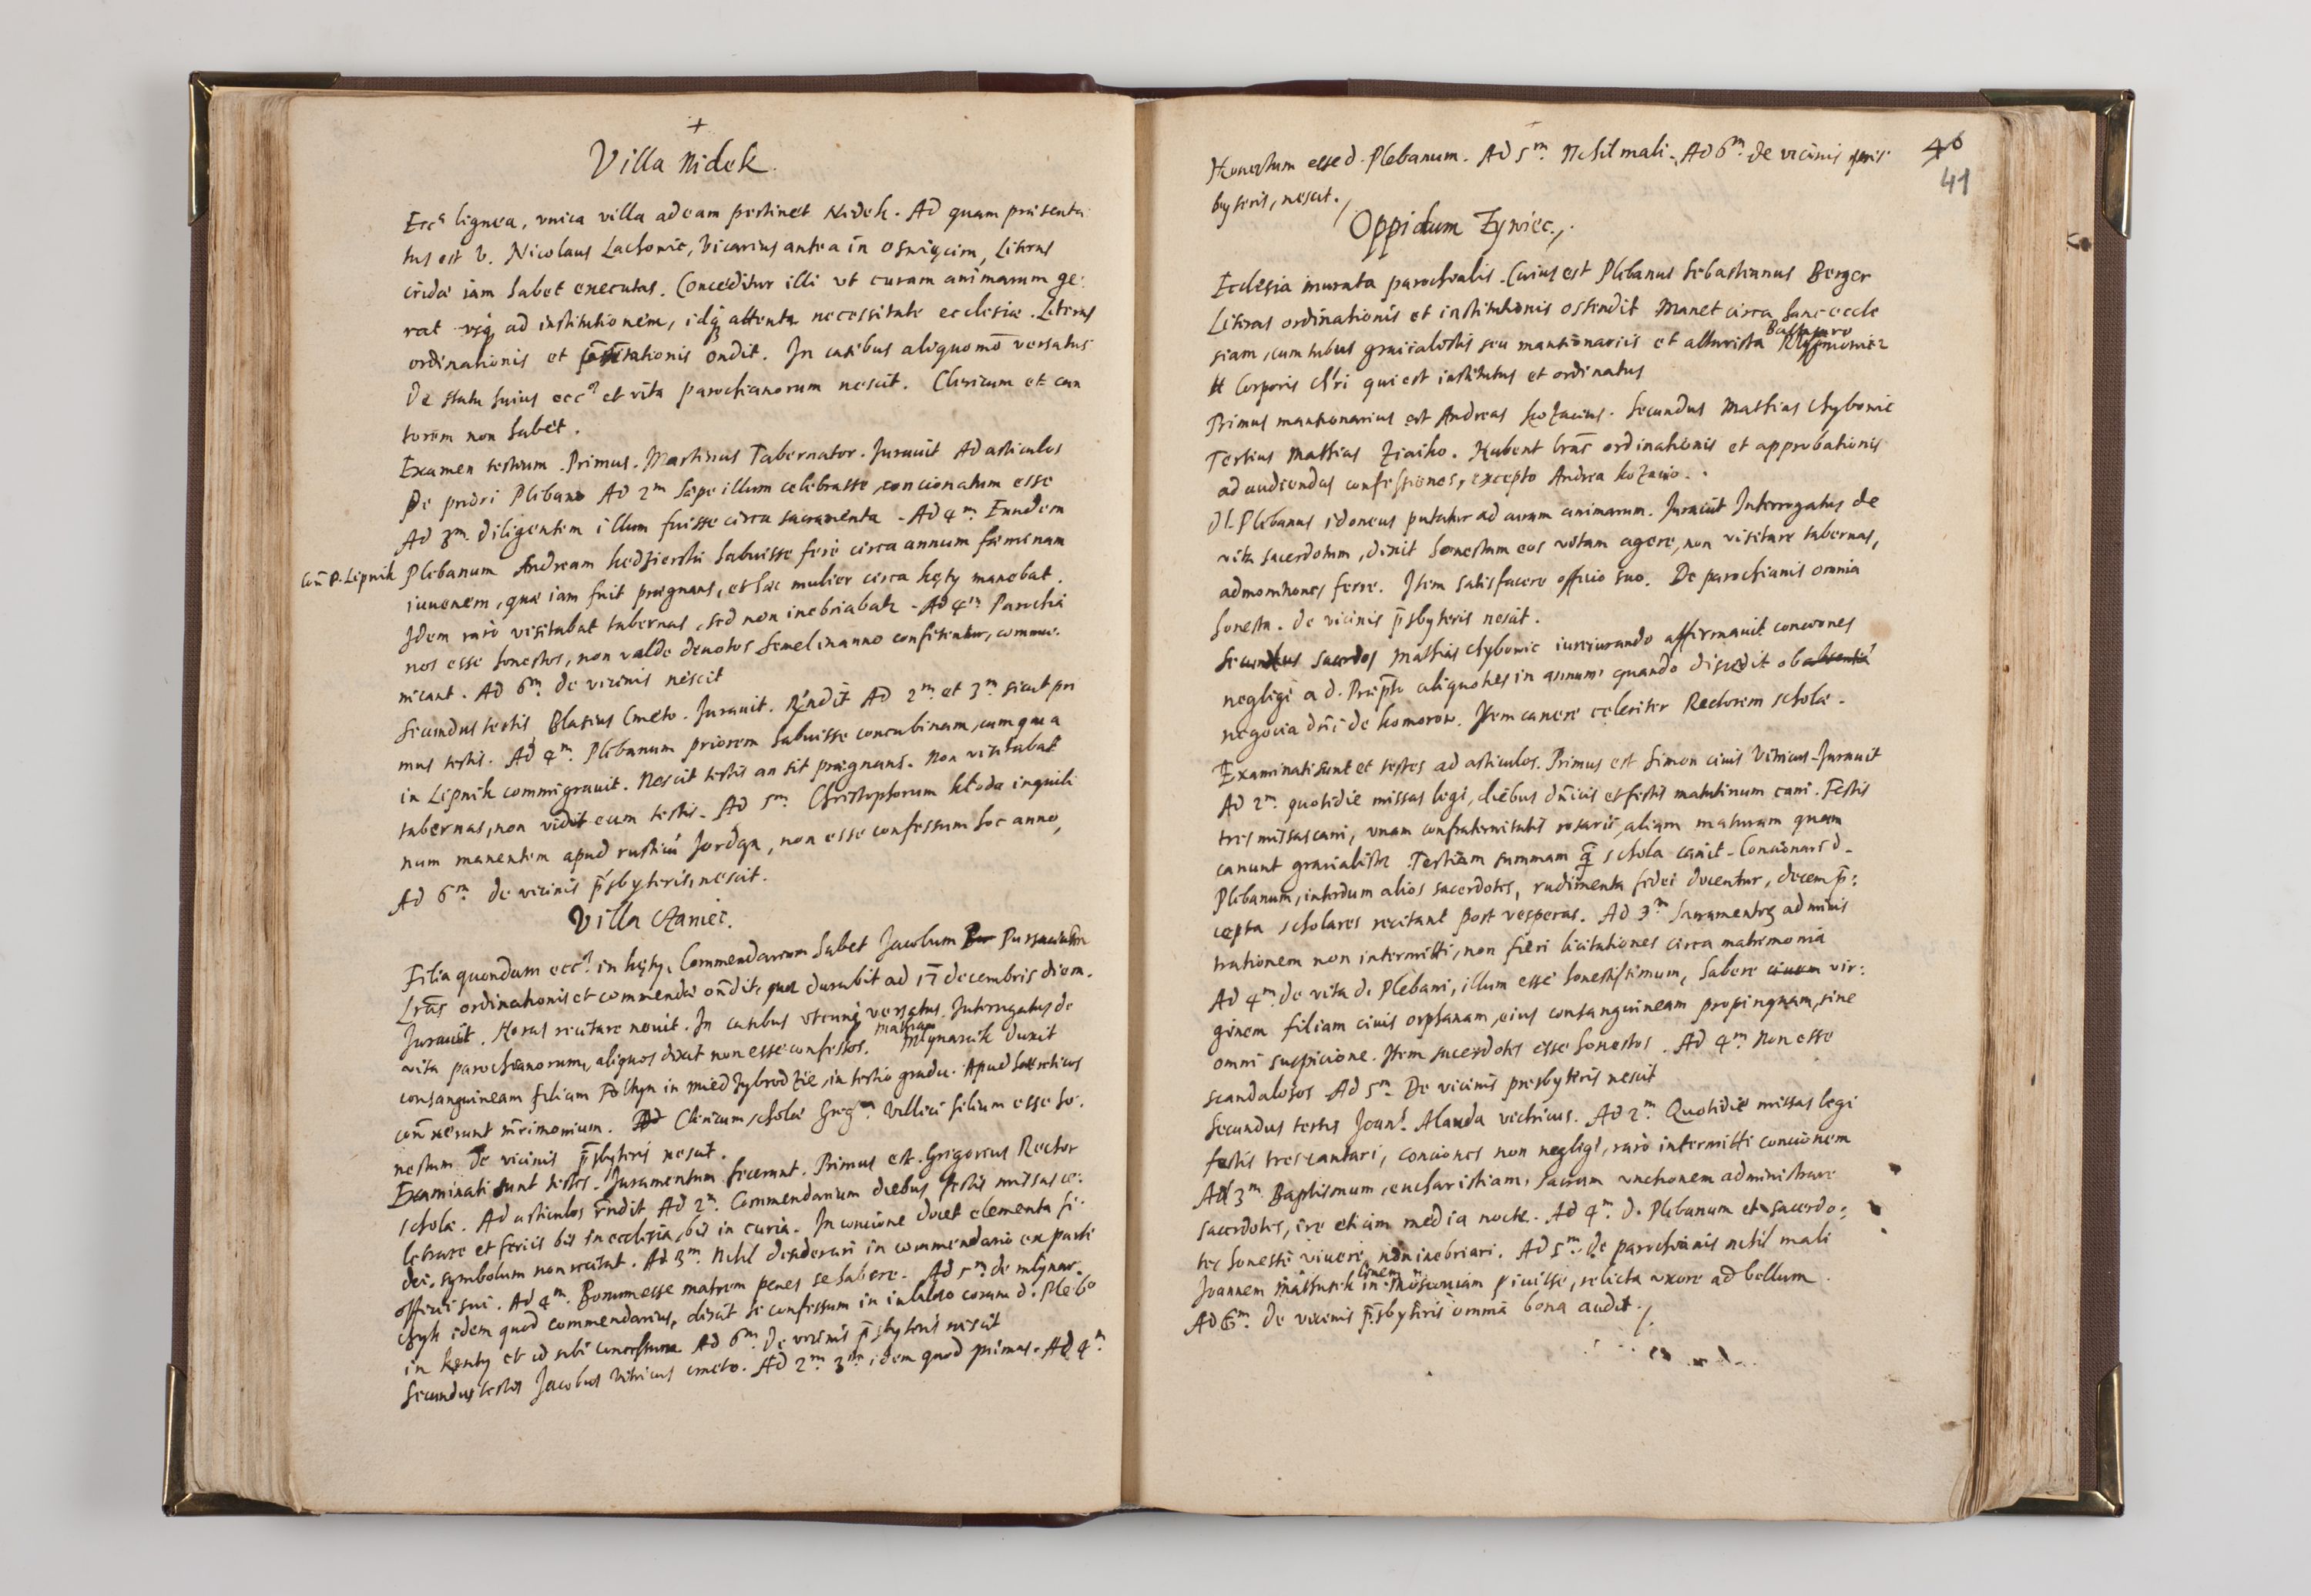 +
Villa Nidek.
Ecca lignea, unica villa ad eam pertinet Nidek. Ad quam praesenta
tus est V. Nicolaus Lachowic, vicarius antea in Oswięcim, Literas
cridae iam habet executas. Conceditur illi ut curam animarum ge:
rat usq ad institutionem, idq attenta necessitate ecclesiae. Literas
ordinationis et ondit. In casibus aliquomo versatus
De statu huius ecc et vita parochianorum nescit. Clericum et can
torem non habet.
Examen testium. Primus. Martinus Tabernator. Iuravit Ad articulos
De priori Plebano Ad 2m saepe illum celebrasse, concionatum esse
Ad 3m diligentem illum fuisse circa sacramenta. Ad 4m Eundem
Con P. Lipnik
Plebanum Andream habuisse fere circa annum faeminam
iuvenem, quae iam fuit praegnans, et haec mulier circa Kęty manebat.
Idem raro visitabat tabernas, sed non inebriabatr. Ad 4m Parochia
nos esse honestos, non valde devotos semel in anno confitentur, commu:
nicant. Ad 6m de vicinis nescit
Secundus testis Blasius Cmeto. Iuravit. Rndit Ad 2m et 3m sicut pri
mus testis. Ad 4m. Plebanum priorem habuisse concubinam, cum qua
in Lipnik commigravit. Nescit testis an sit praegnans. Non visitabat
tabernas, non vidit eum testis. Ad 5m. Christophorum Kłoda inquili
num manentem apud rusticu Jordan, non esse confessum hoc anno,
Ad 6m de vicinis psbyteris, nescit.
Villa Czaniec.
Filia quondam ecc in Kęty. Commendarium habet Jacobum
Lras ordinationis et commendae ondit, quae durabit ad 17 decembris diem.
Iuravit. Horas recitare novit. In casibus utcunq versatus. Interrogatus de
vita parochianorum, aliquos dixit non esse confessos. Mathias Mlynarcik duxit
consanguineam filiam in Miedzybrodzie, in tertio gradu. Apud haereticos
conxerunt mrimonium. Clericum scholae Greg Villici filium esse ho:
nestum. De vicinis psbyteris nescit.
Examinati sunt testes. Iuramentum fecerunt. Primus est Gregorius Rector
scholae. Ad articulos rndit Ad 2m Commendarium diebus festis missas ce:
lebrare et feriis bis in ecclesia, bis in curia. In concione docet elementa fi:
dei, symbolum non recitat. Ad 3m. Nihil desiderari in commendario ex parte
officii sui. Ad 4m. Bonum esse matrem penes se habere. Ad 5m de mlynar
czyk idem quod commendarius, dixit se confessum in coram d. Plebo
in Kenty et id sibi concessum. Ad 6m De vicinis psbyteris nescit
Secundus testis Jacobus Vitricus cmeto. Ad 2m 3m idem quod primus. Ad 4m
40
41
Honestum esse d. Plebanum. Ad 5m. Nihil mali. Ad 6m de vicinis pres
byteris, nescit.
Oppidum Zywiec.
Ecclesia murata parochialis. Cuius est Plebanus Sebastianus Berger
Literas ordinationis et institutionis ostendit Manet circa hanc eccle
siam, cum tribus gracialistis seu mansionariis et altarista Balthasaro
Corporis Chri qui est institutus et ordinatus
Primus mansionarius est Andreas Kozacius. Secundus Mathias Chybowic
Tertius Mathias Ziaiko. Habent lras ordinationis et approbationis
ad audiendas confessiones, excepto Andrea Kozacio.
Dl. Plebanus idoneus putatur ad curam animarum. Iuravit Interrogatus de
vita sacerdotum, dixit honestam eos vitam agere, non visitare tabernas,
admonitiones ferre. Item satisfacere officio suo. De parochianis omnia
honesta. De vicinis psbyteris nescit.
Secundus sacerdos Mathias Chybowic iureiurando affirmavit conciones
negligi a d. Praepto aliquoties in annum quando discedit ob absentia
negocia dni de Komorow. Item canere celeriter Rectorem scholae.
Examinati sunt et testes ad articulos. Primus est Simon civis Vitricus. Iuravit
Ad 2m. quotidie missas legi, diebus dnicis et festis matutinum cani. Festis
tres missas cani, unam confraternitatis rosarii, aliam maturam quam
canunt gracialistae Tertiam summam q schola canit. Concionari d.
Plebanum, interdum alios sacerdotes, rudimenta fidei docentur, decem p:
cepta scholares recitant post vesperas. Ad 3m sacramentor adminis
trationem non intermitti, non fieri licitationes circa matrimonia
Ad 4m. de vita d. Plebani, illum esse honestissimum, habere civem vir:
ginem filiam civis orphanam, eius consanguineam propinquam, sine
omni suspicione. Item sacerdotes esse honestos. Ad 4m Non esse
scandalosos Ad 5m De vicinis presbyteris nescit
Secundus testis Joans Alauda vitricus. Ad 2m. Quotidie missas legi
festis tres cantari, conciones non negligi, raro intermitti concionem
Ad 3m Baptismum, eucharistiam, sacram unctionem administrare
sacerdotes, ire etiam media nocte. Ad 4m. d. Plebanum et sacerdo:
tes honeste vivere, non inebriari. Ad 5m. de parochianis nihil mali
Joannem Mathusek civem in Moscoviam ivisse, relicta uxore ad bellum.
Ad 6m. de vicinis psbyteris omnia bona audit.